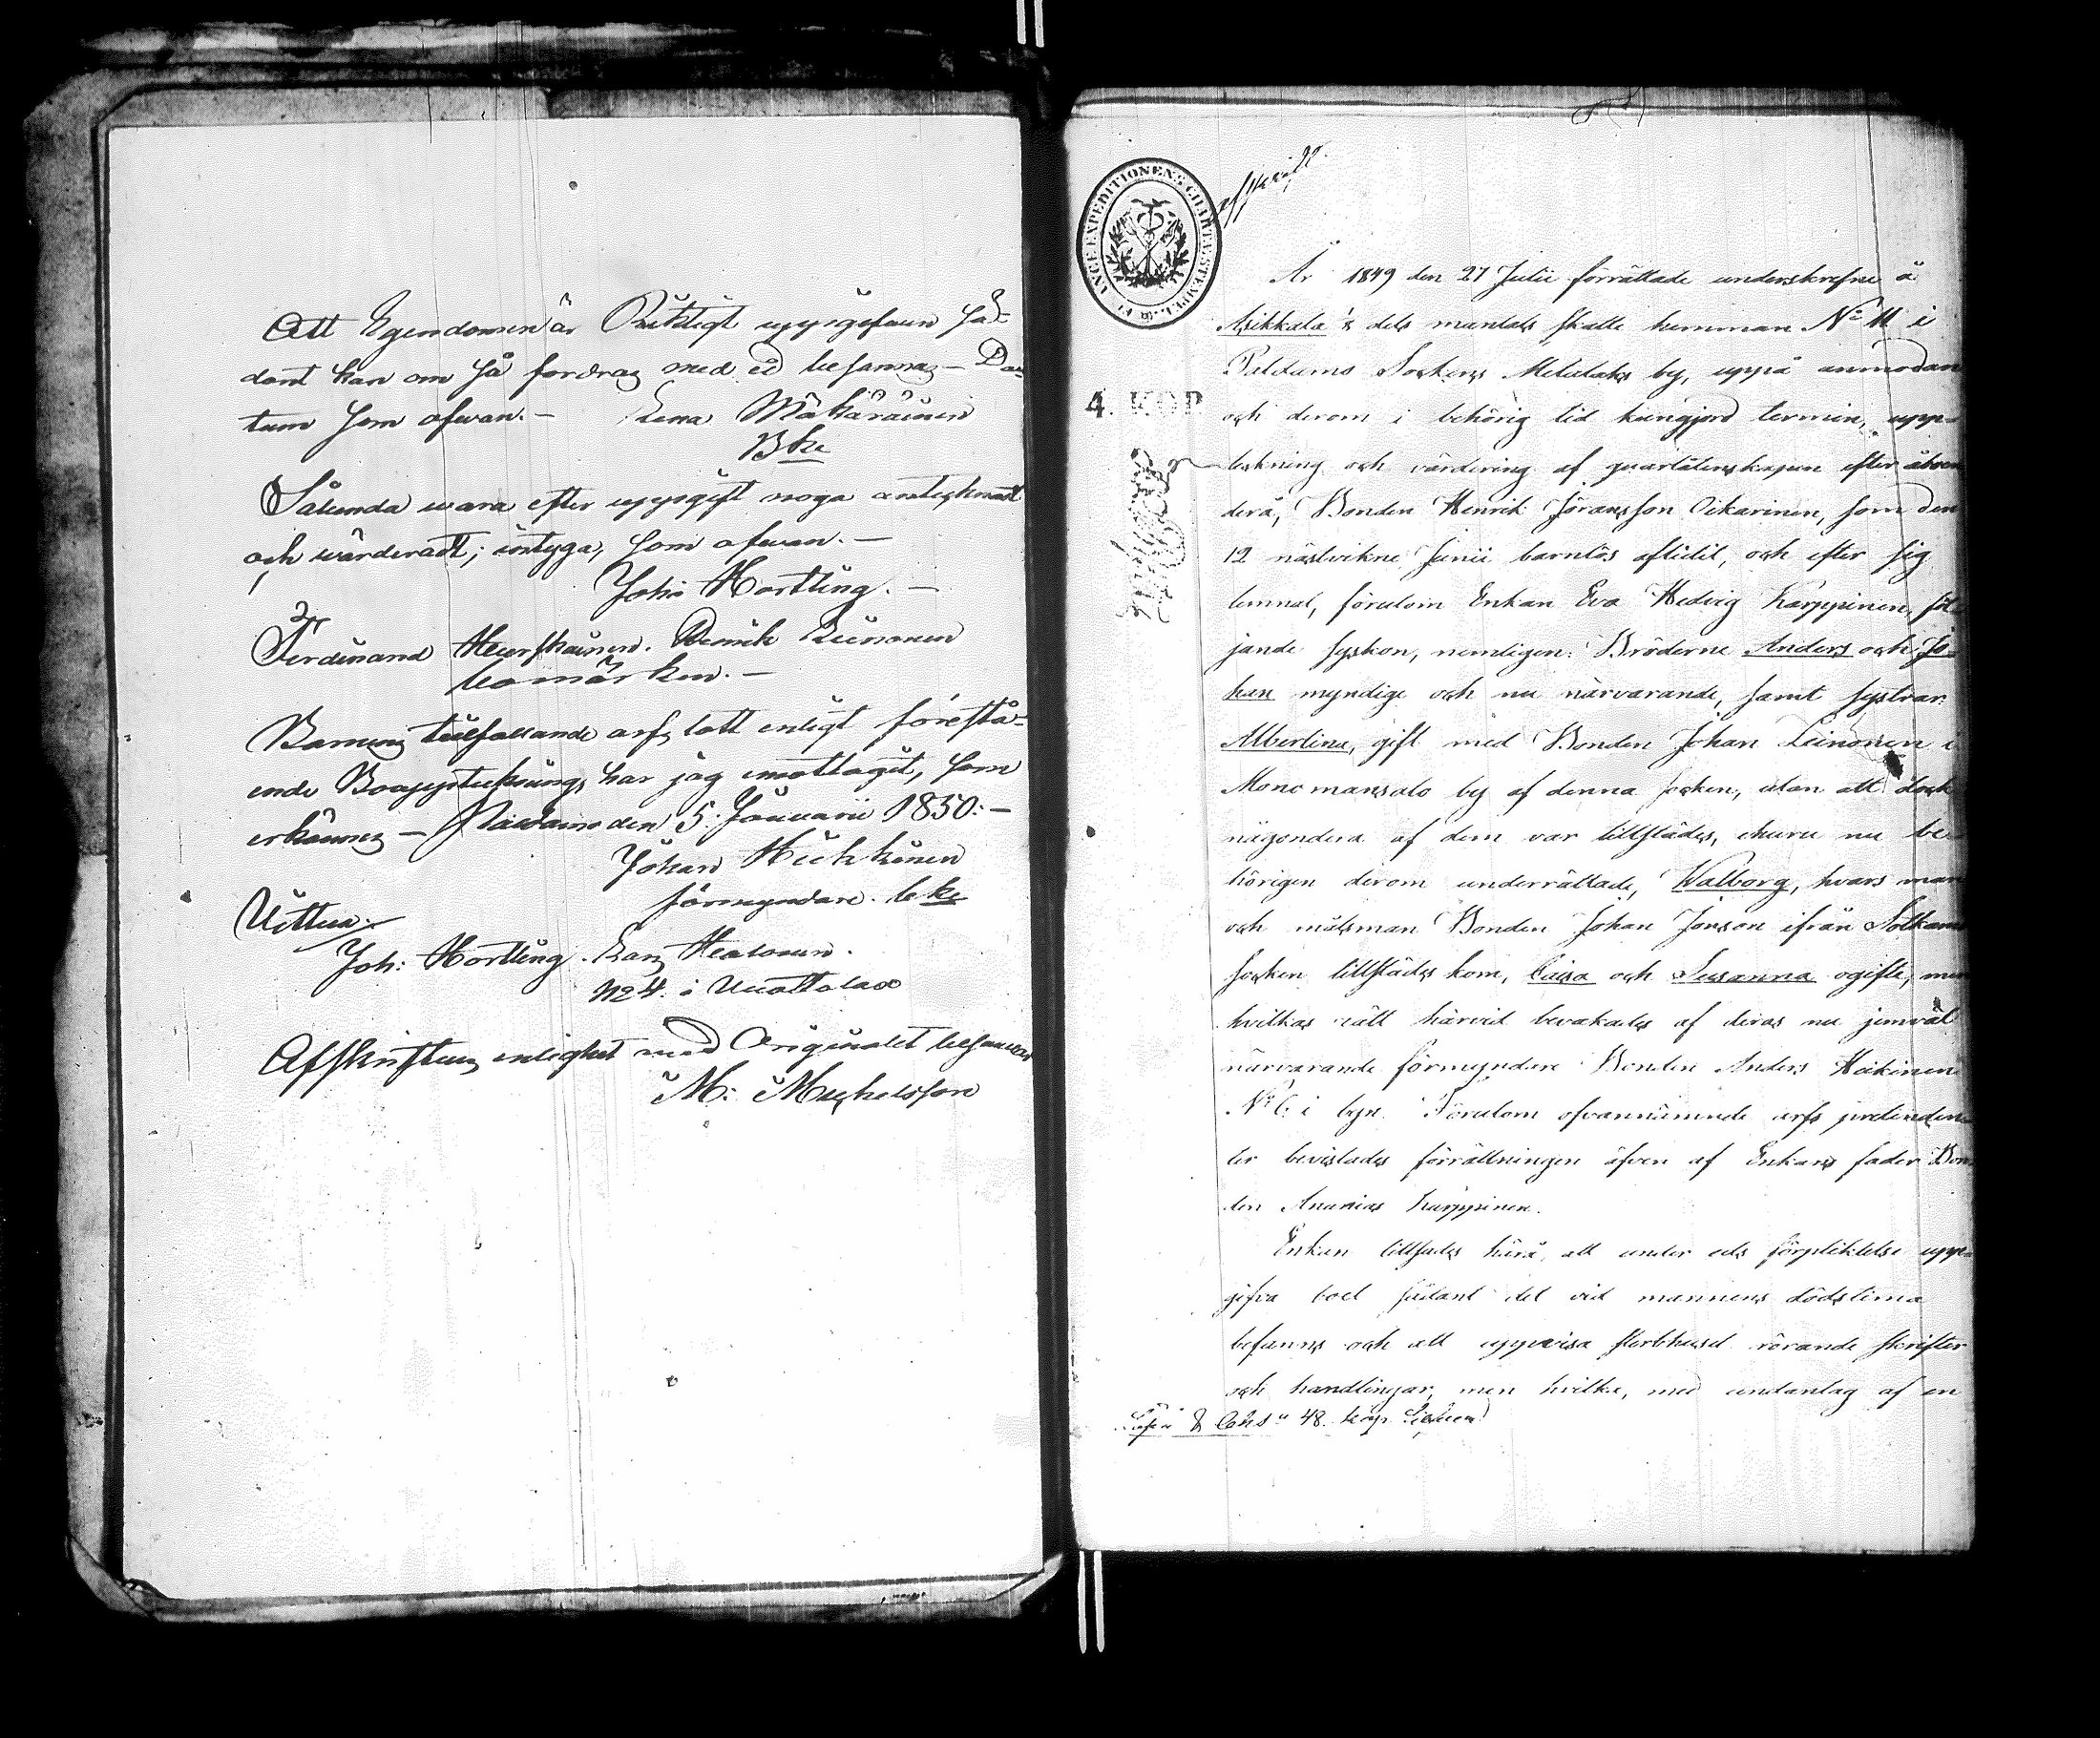 Att Egendomen är Riktigt uppgifven så-
dant kan om så fordras med ed besannas – Da-
tum som ofvan. – Lena Mäkäräinen
Bke
Sålunda wara efter uppgift noga antecknadt
och wärderadt; intyga, som ofwan. –
Joh: Hortling. –
Ferdinand Heinric
bomärken. –
Barnens tillfallande arfs lott enligt förestå-
ende Bouppteckning, har jag emottagit, som
erkännes – Paldamo den 5: Januarii 1850: –
Johan Heikkinen
förmyndare. bke
Vittna:
Joh: Hortling. Lars
N:o 4. i
Afskriftens enlighet med Originalet besannar
M: Michelsson
CHARTÆ STEMPEL
afskrift.
4. KOP
År 1849 den 27 Julii förrättade underskrefne å
dels mantals skatte hemman N:o 11 i
Paldamo Sockens Melalaks by, uppå anmodan
och derom i behörig tid kungjord termin, upp-
tekning och värdering af qvarlåtenskapen efter åboen
derå, Bonden Henrik Jöransson Oikarinen, som den
12 nästvikne Junii barnlös aflidit, och efter sig
lemnat, förutom Enkan Eva Hedvig Karppinen, föl-
jande syskon, nemligen: Bröderne Anders och Jo-
han myndige och nu närvarande, samt systrar:
Albertina, gift med Bonden Johan Leinonen i
Monomansalo by af denna socken, utan att dock
någondera af dem var tillstädes, ehuru nu be-
hörigen derom underrättade, Walborg, hvars man
och målsman Bonden Johan Jonson ifrån Sotkamo
socken tillstädes kom, Caisa och Susanna ogifte, men
hvilkas rätt härvid bevakades af deras nu jemväl
närvarande förmyndare Bonden Anders Heikinen
N:o 6: i byn. Förutom ofvannämnde arfs prætenden-
ter bevistades förrättningen äfven af Enkans fader Bon-
den Ananias Karppinen.
Enkan tillsades härå, att under eds förpliktelse upp-
gifva boet sådant det vid mannens dödstima
befunns och att uppvisa sterbhuset rörande skrifter
och handlingar, men hvilka, med undantag af en
48. kop.